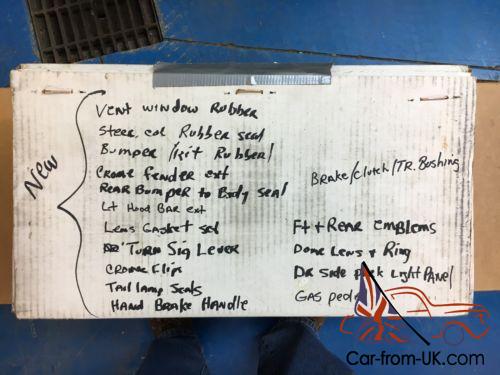 New
Vent window Rubber
Steer col Rubber seal
Bumper /kit Rubber/
Crome fender ext
Rear Bumper to Body seal
Lt Hood Bar ext
Lens Gasket set
Turn Sig Lever
Crome Flips
Tail lamp Seals
Hand Brake Handle
Brake/Clutch/TR. Bushing
Ft + Rear Emblems
Dome Lens + Ring
DR Side Light Panel
Gas
Car-from-UK.com